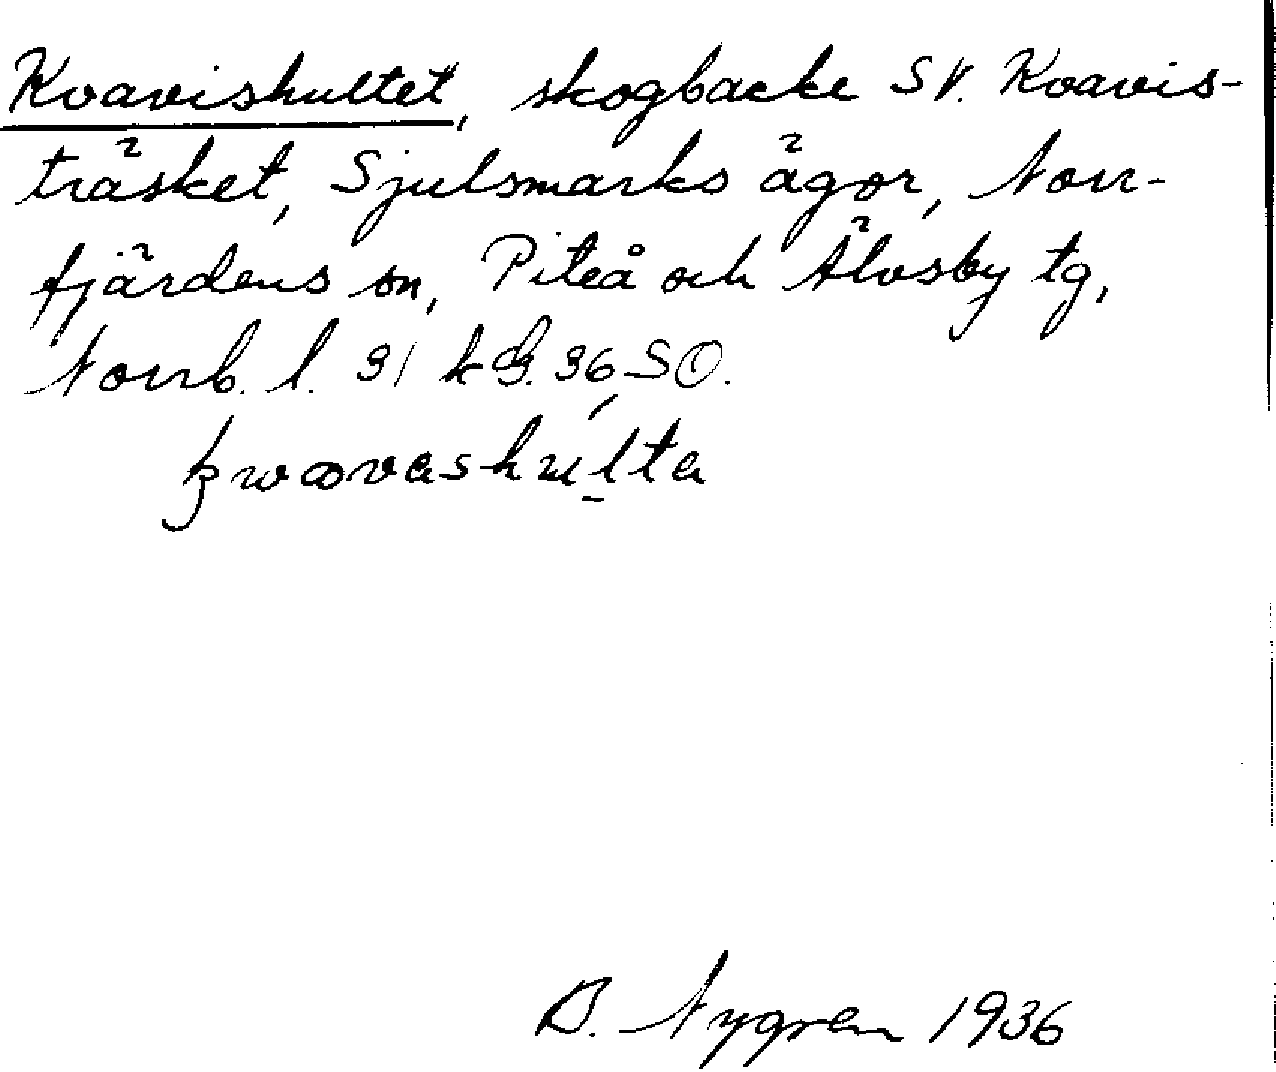 Kvavishultet, skogbacke SV. Kvavis-
träsket, Sjulsmarks ägor, Norr-
fjärdens sn, Piteå och Älvsby tg,
Norrb. l. 31 k bl. 36 SO.
B. Nygren 1936